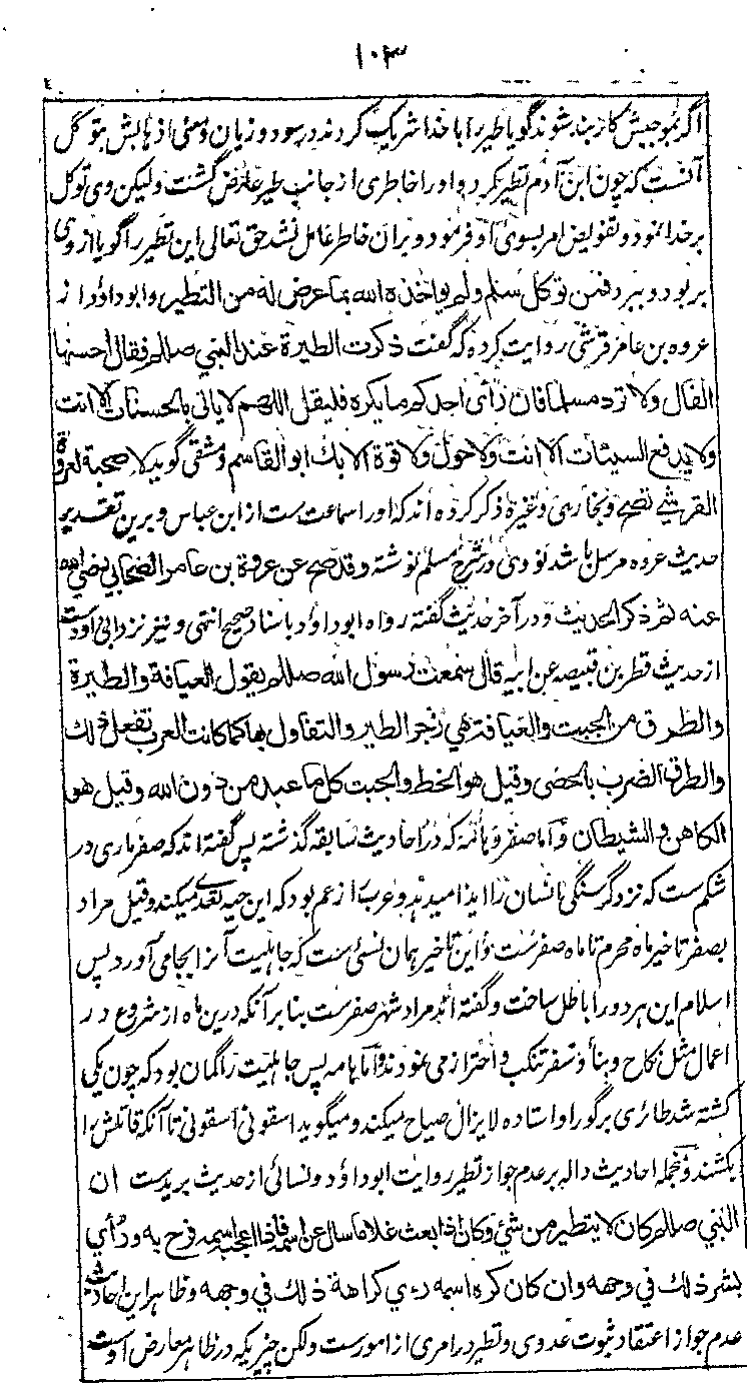 ۱۰۳
اگر بموجبش کاربند شوند گویا طیر را با خدا شریک کردند در سود و زیان و معنی اذهابش بتوکل
آنست که چون ابن آدم تطیر کرد و او را خاطری از جانب طیر عارض گشت ولیکن وی توکل
بر خدا نمود و تفویض امر بسوی او فرمود و بران خاطر عامل نشد حق تعالی این تطیر را گویا از وی
بر بود و ببرد فمن توکل سلم ولم یواخذه الله بما عرض له من التطیر و ابوداؤد از
عروه بن عامر قرشی روایت کرده که گفت ذکرت الطیرة عند النبی صللم فقال احسنها
الفال ولا ترد مسلما فان رأی احدکم ما یکره فلیقل اللهم لا یاتی بالحسنات الا انت
ولا یدفع السیئات الا انت ولا حول ولا قوة الا بك ابو القاسم دمشقی گوید لا صحبة لعروة
القرشی تصح و بخاری و غیره ذکر کرده اند که او را سماعت ست از ابن عباس و برین تقدیر
حدیث عروه مرسل باشد نووی در شرح مسلم نوشته وقد صح عن عروة بن عامر الصحابی رضی الله
عنه ثم ذکر الحدیث و در آخر حدیث گفته رواه ابوداؤد باسناد صحیح انتهی و نیز نزد ابی داؤدست
از حدیث قطر بن قبیصه عن ابیه قال سمعت رسول الله صللم یقول العیافة والطیرة
والطرق من الجبت والعیافة هی زجر الطیر والتفاول بها کما کانت العرب تفعل ذلك
والطرق الضرب بالحصی وقیل هو الخط والجبت کل ما عبد من دون الله وقیل هو
الکاهن والشیطان و اما صفر و هامه که در احادیث سابقه گذشته پس گفته اند که صفر ماری در
شکم ست که نزد گرسنگی انسان را ایذا میدهد و عرب را زعم بود که این حیه تعدی میکند و قیل مراد
بصفر تاخیر ماه محرم تا ماه صفرست و این تاخیر همان نسئ ست که جاهلیت آنرا بجا می آورد پس
اسلام این هر دو را باطل ساخت و گفته اند مراد شهر صفرست بنا بر آنکه درین ماه از شروع در
اعمال مثل نکاح و بنا و سفر تنکب و احتراز می نمودند و اما هامه پس جاهلیت را گمان بود که چون یکی
کشته شد طائری بر گور او استاده لایزال صیاح میکند و میگوید اسقونی اسقونی تا آنکه قاتلش را
بکشند و منجمله احادیث داله بر عدم جواز تطیر روایت ابوداؤد و نسائی از حدیث بریدست ان
النبی صللم کان لا یتطیر من شئ وکان اذا بعث غلاما سال عن اسمه فاذا اعجبه اسمه فرح به ورأی
بشر ذلك فی وجهه وان کان کره اسمه رءی کراهة ذلك فی وجهه وظاهر این احادیث
عدم جواز اعتقاد ثبوت عدوی و تطیر در امری از امورست ولکن چیزیکه در ظاهر معارض اوست